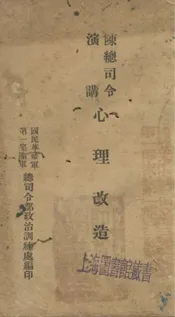 陳總司令
演講
心理改造
國民革命軍
第一集團軍
總司令部政治訓練處編印
上海圖書館藏書